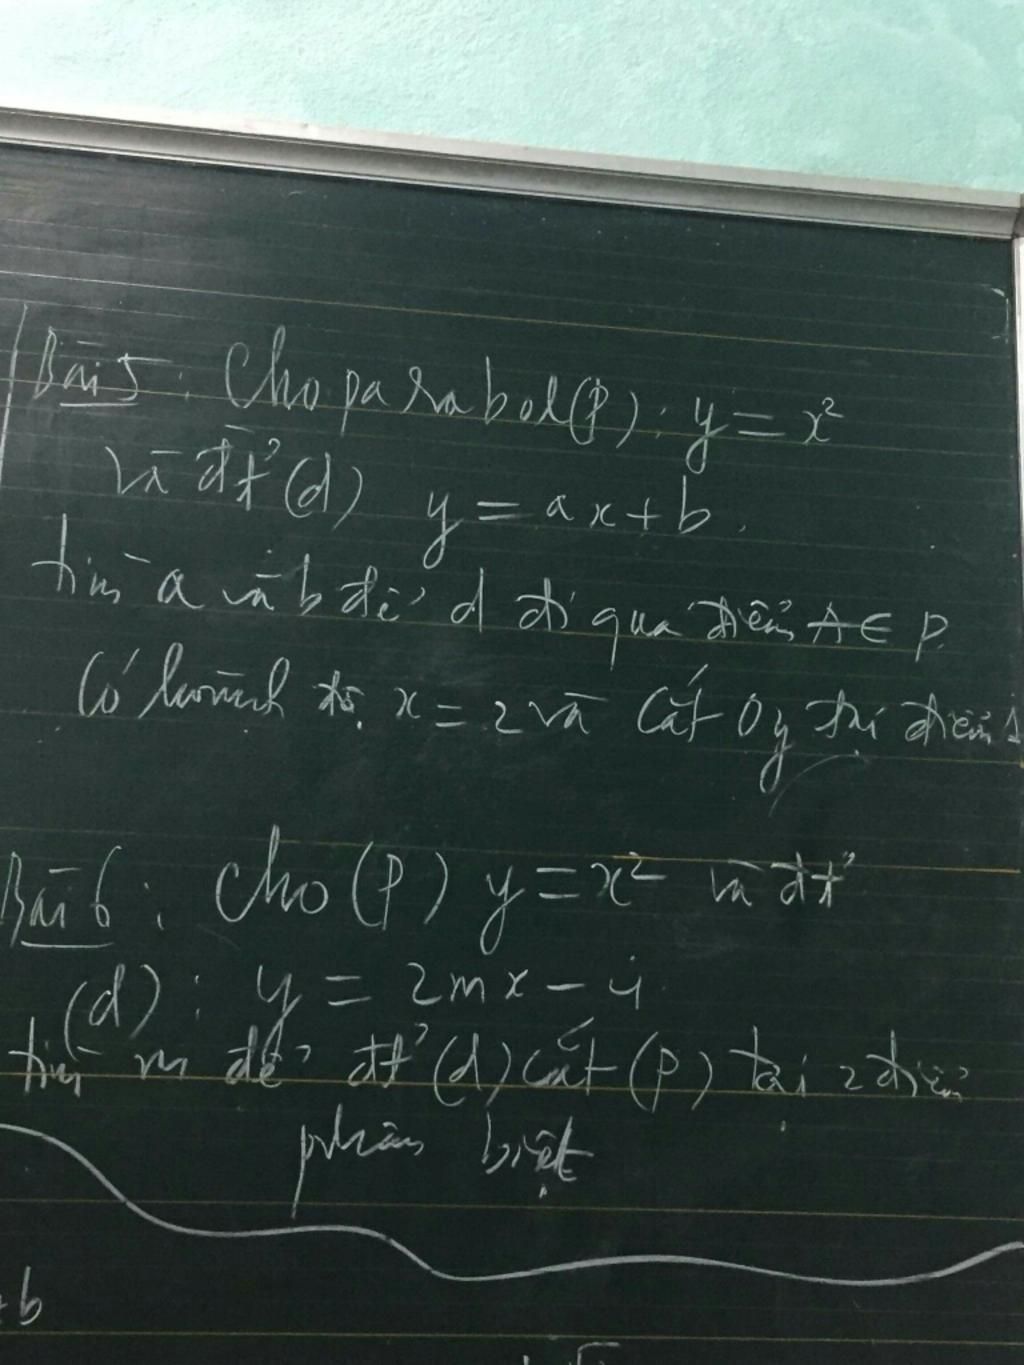 Bài 5: Cho parabol (P): y = x²
và đt' (d) y = ax + b.
tìm a và b để d đi qua điểm A ∈ P
có hoành độ x = 2 và cắt Oy tại điểm
Bài 6: Cho (P) y = x² và đt'
(d): y = 2mx - 4
tìm m để đt' (d) cắt (P) tại 2 điểm
phân biệt
+ b